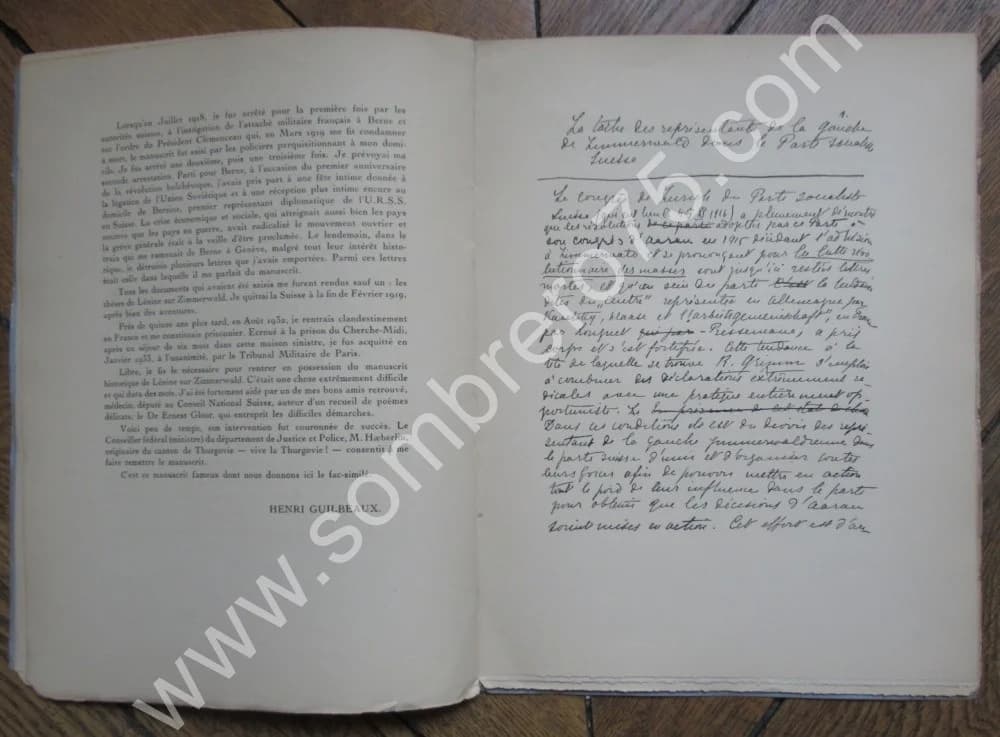 Lorsqu'en Juillet 1918, je fus arrêté pour la première fois par les
autorités suisses, à l'instigation de l'attaché militaire français à Berne et
sur l'ordre du Président Clémenceau qui, en Mars 1919 me fit condamner
à mort, le manuscrit fut saisi par les policiers perquisitionnant à mon domi-
cile. Je fus arrêté une deuxième, puis une troisième fois. Je prévoyai ma
seconde arrestation. Parti pour Berne, à l'occasion du premier anniversaire
de la révolution bolchévique, j'avais pris part à une fête intime donnée à
la légation de l'Union Soviétique et à une réception plus intime encore au
domicile de Berzine, premier représentant diplomatique de l'U.R.S.S.
en Suisse. La crise économique et sociale, qui atteignait aussi bien les pays
neutres que les pays en guerre, avait radicalisé le mouvement ouvrier et
la grève générale était à la veille d'être proclamée. Le lendemain, dans le
train qui me ramenait de Berne à Genève, malgré tout leur intérêt histo-
rique, je détruisis plusieurs lettres que j'avais emportées. Parmi ces lettres
était celle dans laquelle il me parlait du manuscrit.
Tous les documents qui avaient été saisis me furent rendus sauf un : les
thèses de Lénine sur Zimmerwald. Je quittai la Suisse à la fin de Février 1919,
après bien des aventures.
Près de quinze ans plus tard, en Août 1932, je rentrais clandestinement
en France et me constituais prisonnier. Ecroué à la prison du Cherche-Midi,
après un séjour de six mois dans cette maison sinistre, je fus acquitté en
Janvier 1933, à l'unanimité, par le Tribunal Militaire de Paris.
Libre, je fis le nécessaire pour rentrer en possession du manuscrit
historique de Lénine sur Zimmerwald. C'était une chose extrêmement difficile
et qui dura des mois. J'ai été fortement aidé par un de mes bons amis retrouvé,
médecin, député au Conseil National Suisse, auteur d'un recueil de poèmes
délicats, le Dr Ernest Glour, qui entreprit les difficiles démarches.
Voici peu de temps, son intervention fut couronnée de succès. Le
Conseiller fédéral (ministre) du département de Justice et Police, M. Hæberlin,
originaire du canton de Thurgovie — vive la Thurgovie ! — consentit à me
faire remettre le manuscrit.
C'est ce manuscrit fameux dont nous donnons ici le fac-similé.
HENRI GUILBEAUX.
La tâche des représentants de la gauche
de Zimmerwald dans le Parti socialiste
Suisse
Le congrès de Zurich du Parti socialiste
Suisse 1916) a pleinement démontré
que les résolutions adoptées par ce Parti à
son congrès d'Aarau en 1915 décidant l'adhésion
à Zimmerwald et se prononçant pour la lutte révo
lutionnaire des masses sont jusqu'ici restées lettre
morte et qu'au sein du parti c'est la
du "centre" représentée en Allemagne par
Kautsky, Haase et l'"arbeitsgemeinschaft", en France
par Longuet Pressemane, a pris
corps et s'est fortifiée. Cette tendance à la
tête de laquelle se trouve R. Grimm s'emploie
à combiner des déclarations extrêmement ra
dicales avec une pratique entièrement op
portuniste. Le
Dans ces conditions il est du devoir des repré
sentants de la gauche zimmerwaldienne dans
le parti suisse d'unir et d'organiser toutes
leurs forces afin de pouvoir mettre en action
tout le poids de leur influence dans le parti
pour obtenir que les décisions d'Aarau
soient mises en action. Cet effort est d'au
www.sombrero75.com